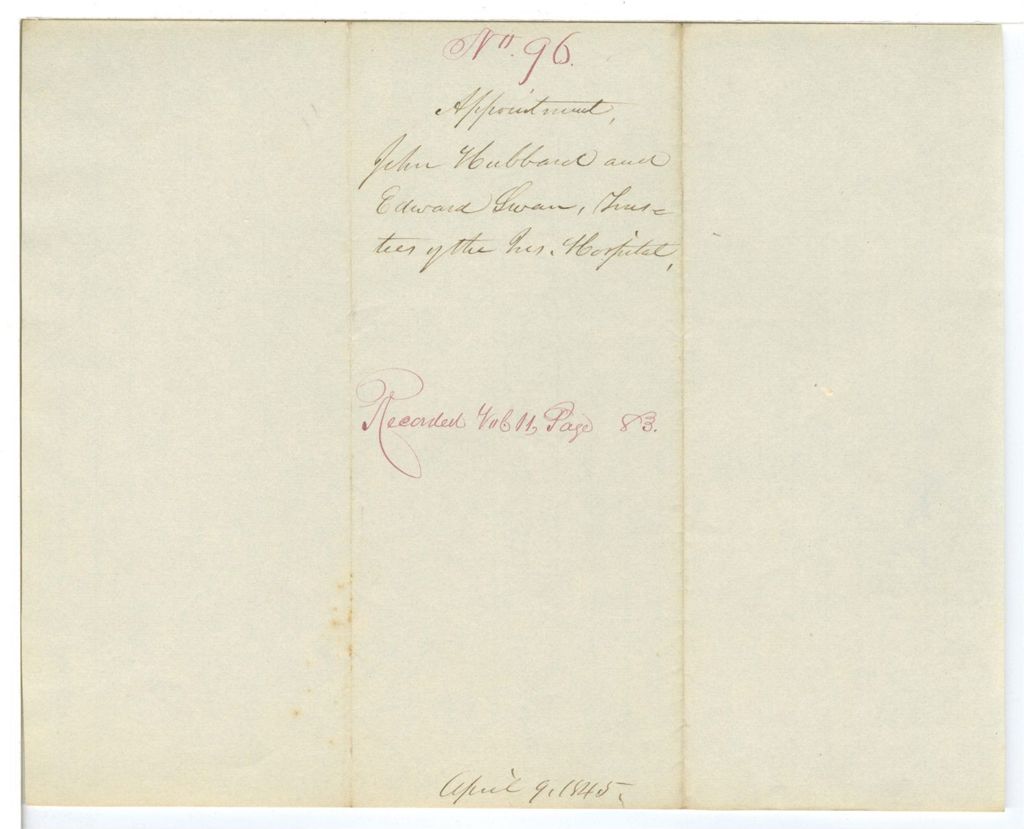 No. 96.
Appointment,
John Hubbard and
Edward Swan, Trus=
tees of the Ins. Hospital,
Recorded Vol 11, Page 83.
April 9, 1845.